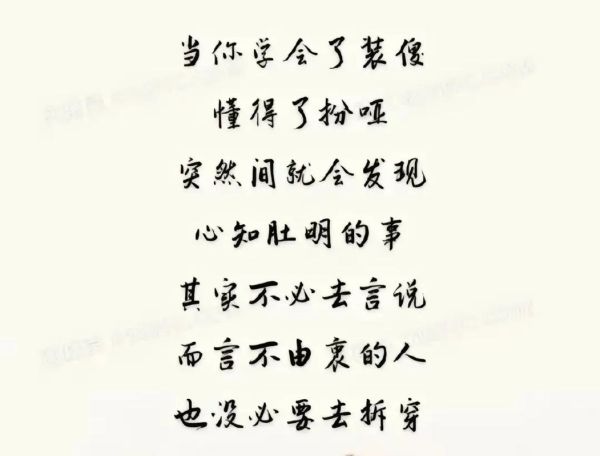 当你学会了装傻
懂得了扮哑
突然间就会发现
心知肚明的事
其实不必去言说
而言不由衷的人
也没必要去拆穿